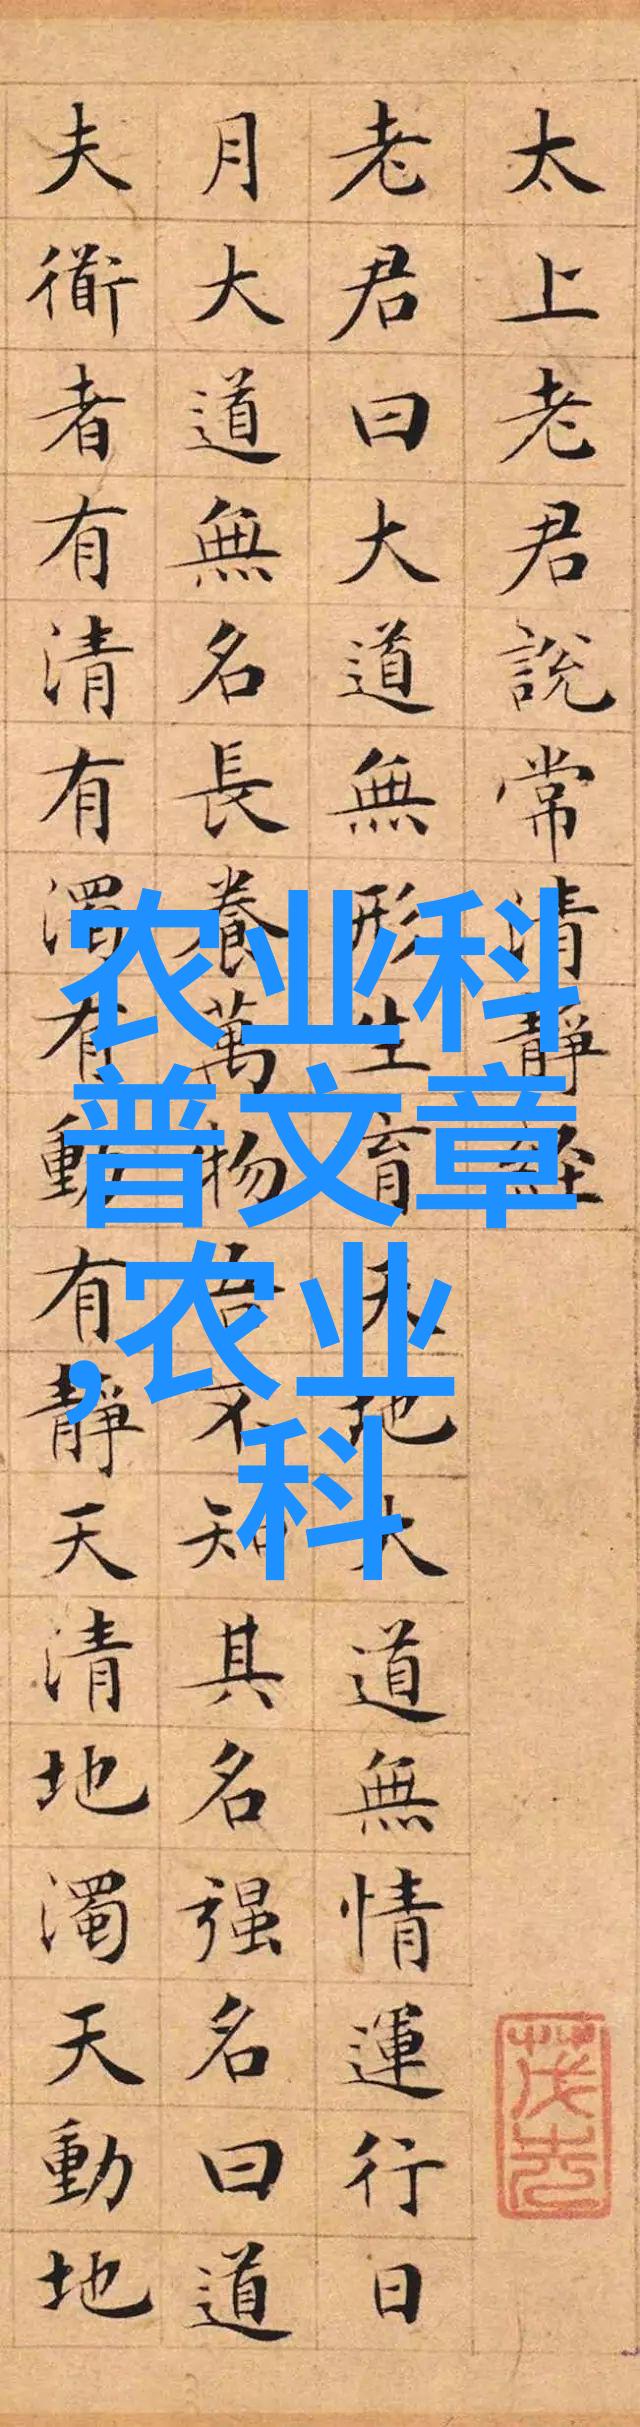 太上老君說常清靜經
老君曰大道無形生育天地大道無情運行日
月大道無名長養萬物吾不知其名强名曰道
夫衜者有清有濁有動有靜天清地濁天動地
農业科
普文章
,农业
科